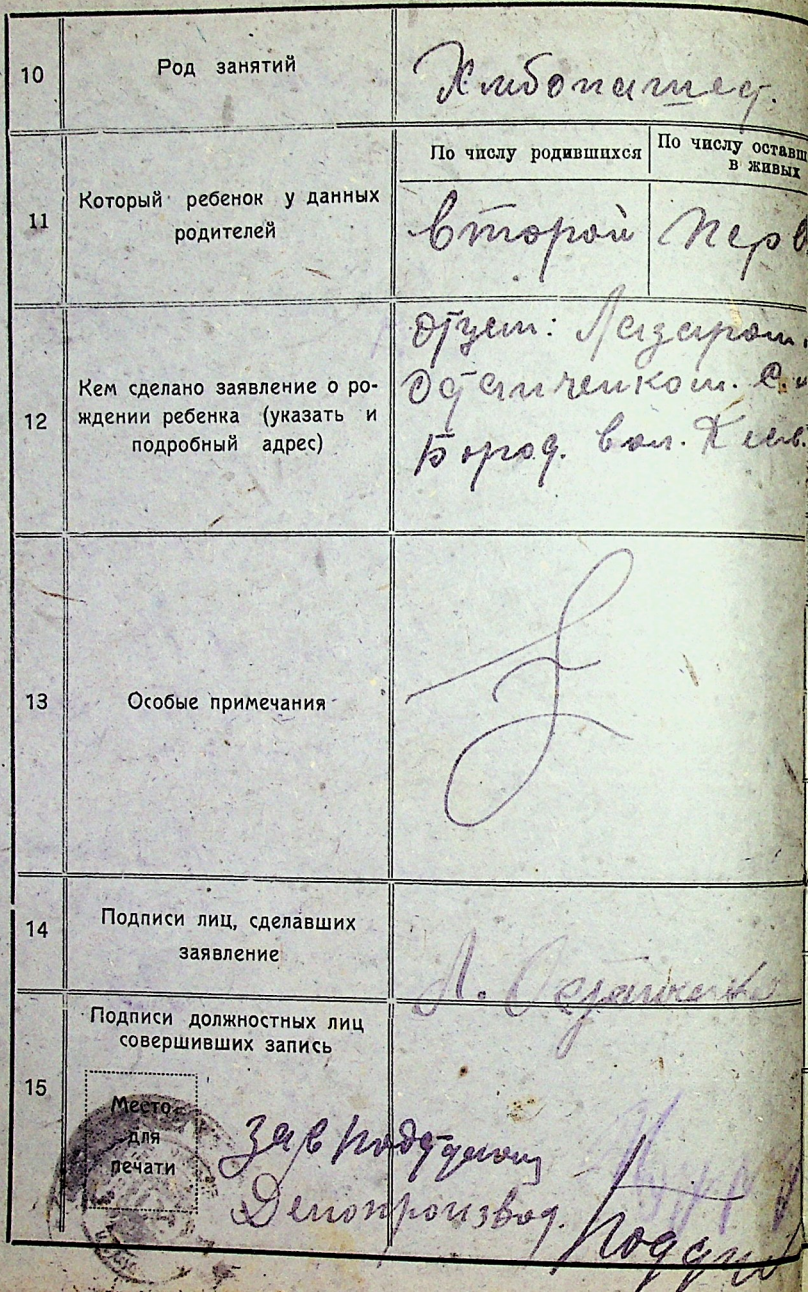 10 Род занятий Хлибопашец.
11 Который ребенок у данных родителей
По числу родившихся
По числу оставш
в живых
второй
перв
12 Кем сделано заявление о ро-
ждении ребенка (указать и
подробный адрес)
отцем: Лазаром.
Остапченком. С.
Бород. вол. Киев.
13 Особые примечания
14 Подписи лиц, сделавших
заявление
Л. Остапченко
15 Подписи должностных лиц
совершивших запись
Место
для
печати
Зав
Делопроизвод.